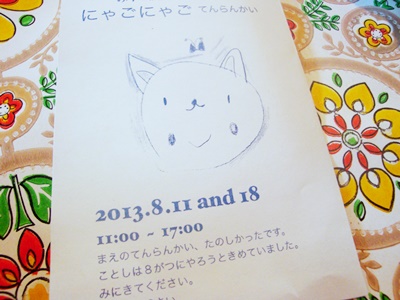 にゃごにゃご てんらんかい
2013.8.11 and 18
11:00 ~ 17:00
まえのてんらんかい、たのしかったです。
ことしは８がつにやろうときめていました。
みにきてください。